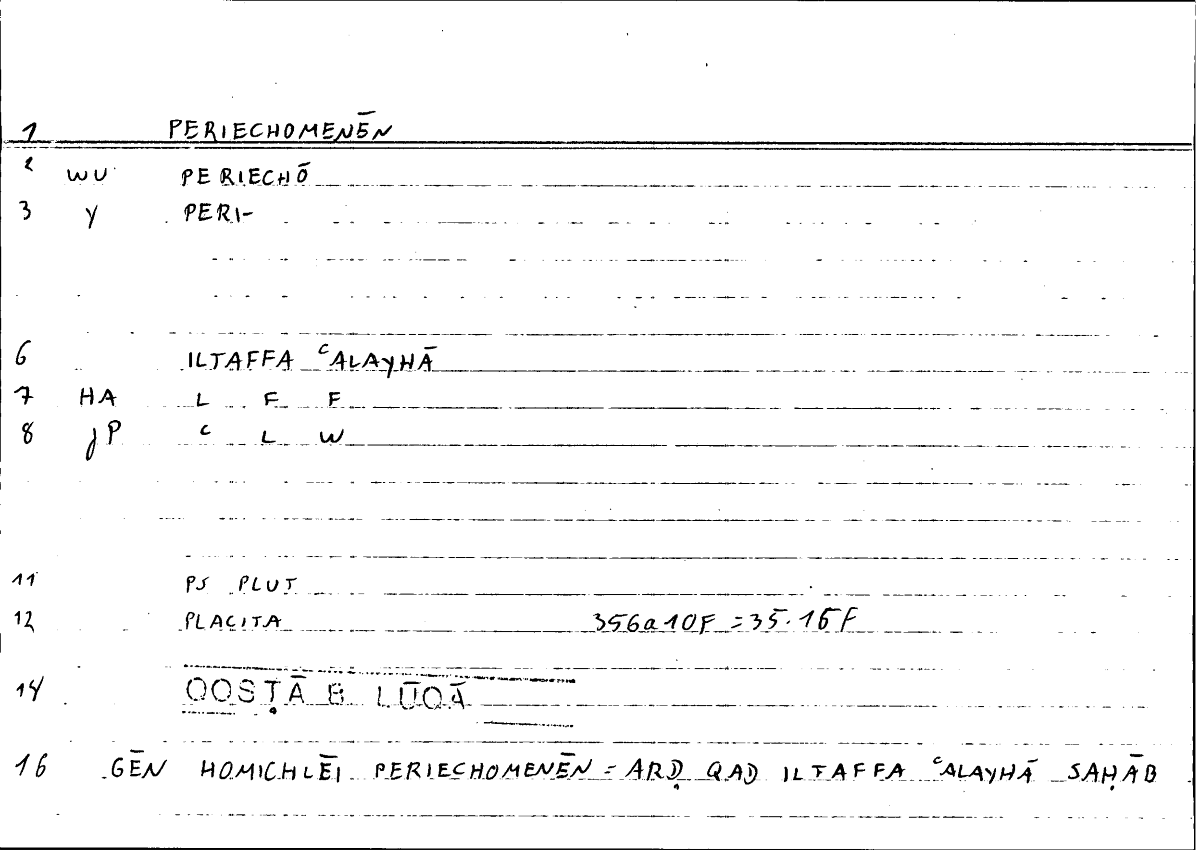 1 PERIECHOMENĒN
2 WU PERIECHŌ
3 Y PERI-
6 ILTAFFA ᶜALAYHĀ
7 HA L F F
8 JP ᶜ L W
11 PS PLUT
12 PLACITA 356a10F = 35.16F
14 QOSṬĀ B LŪQĀ
16 GĒN HOMICHLĒI PERIECHOMENĒN = ARḌ QAD ILTAFFA ᶜALAYHĀ SAḤĀB